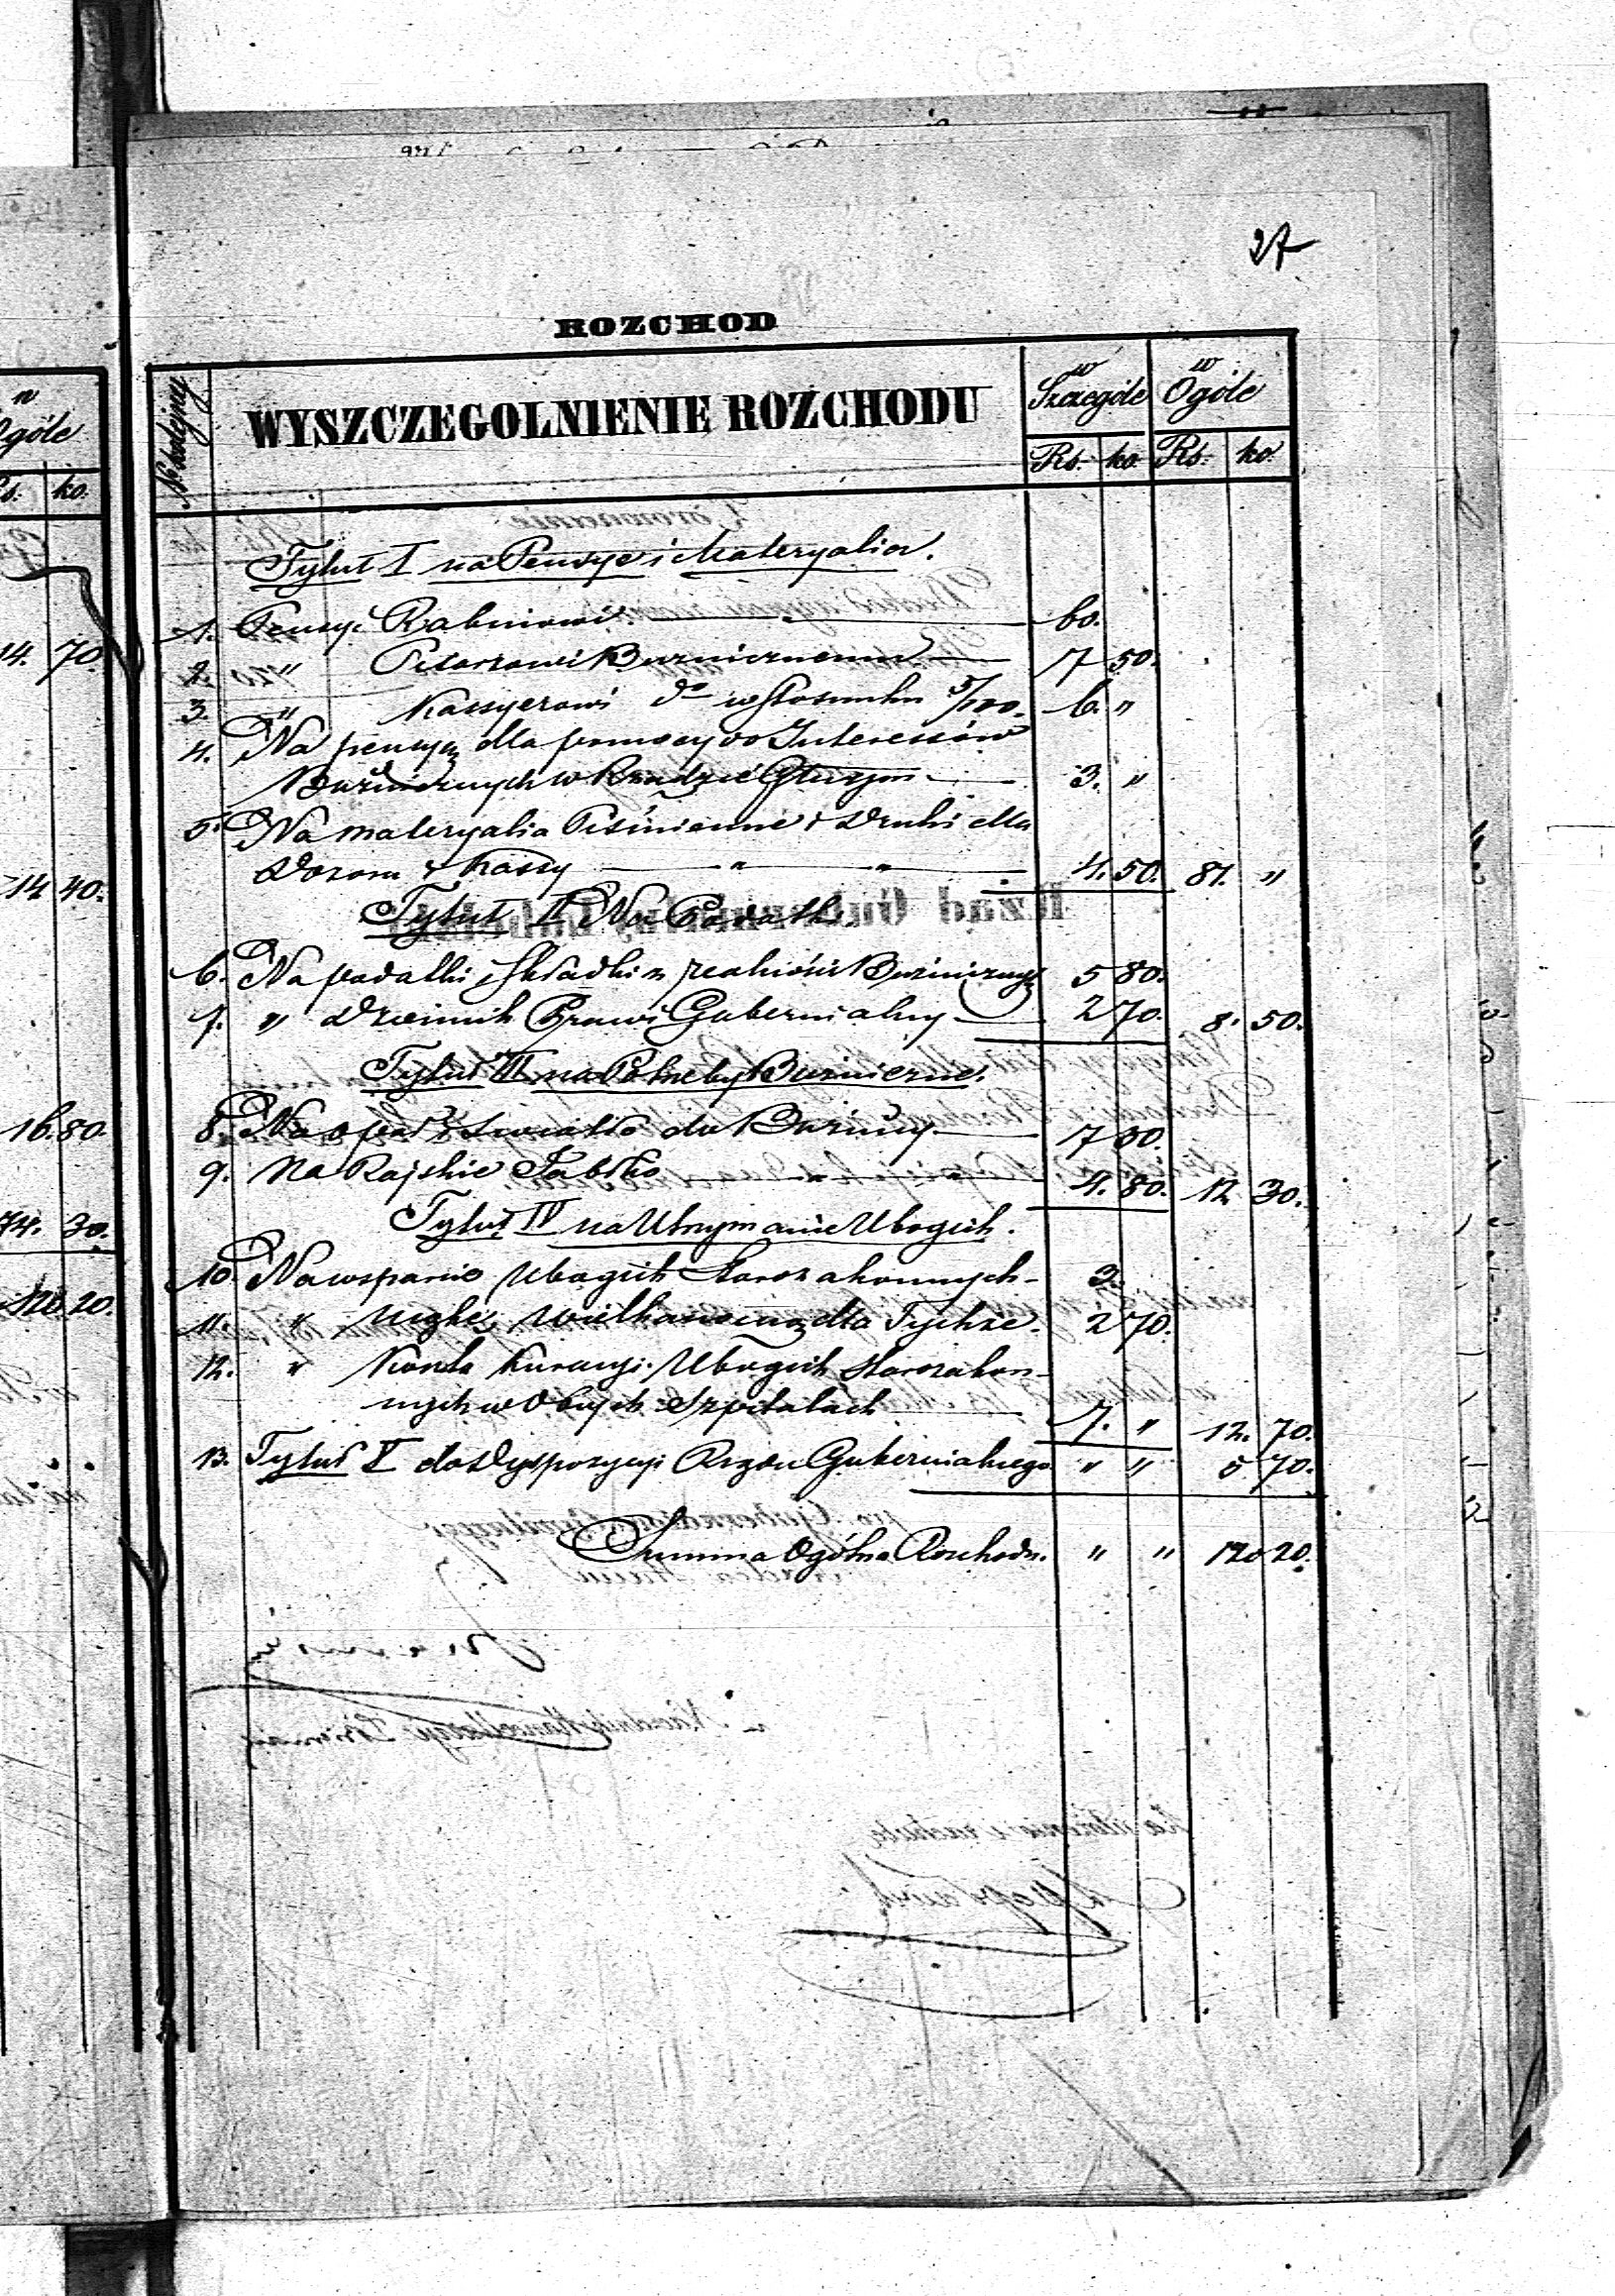 27
ROZCHOD
No kolejny
WYSZCZEGOLNIENIE ROZCHODU
w Szczególe
w Ogóle
Rs. ko. Rs. ko.
Tytuł I na Pensye i Materyalia.
1. Pensyi Rabinowi 60.
2. " Pisarzowi Bużnicznemu 7 50.
3. " Kassyerowi do w stosunku 5/100. 6. "
4. Na pensyę dla pomocy do Interessów
Bużnicznych w Rządzie Gluzjon 3. "
5. Na materyalia Piśmienne i druki dla
Dozoru i Kassy " " 4. 50. 81. "
Tytuł II Na Podatki
6. Na podatki i składki z realności Bużnicznych 5 80.
7. " Dziennik Praw i Gubernialny 2 70. 8. 50.
Tytuł III na Potrzeby Bużniczne.
8. Na opał i światło do Bużnicy 7 50.
9. Na Rajskie Jabłko " " 4. 80. 12 30.
Tytuł IV na Utrzymanie Ubogich.
10. Na wsparcie Ubogich Starozakonnych 3.
11. " Mąkę Wielkanocną dla Tychże. 2 70.
12. " Koszta Kuracyi Ubogich Starozakon-
nych w Obcych Szpitalach 7. " 12. 70.
13. Tytuł V do Dyspozycyi Rządu Gubernialnego " " 5 70.
Summa Ogólna Rozchodu. " " 120 20.
Ogóle
ko.
14. 70.
14 40.
16. 80.
74. 30.
120 20.